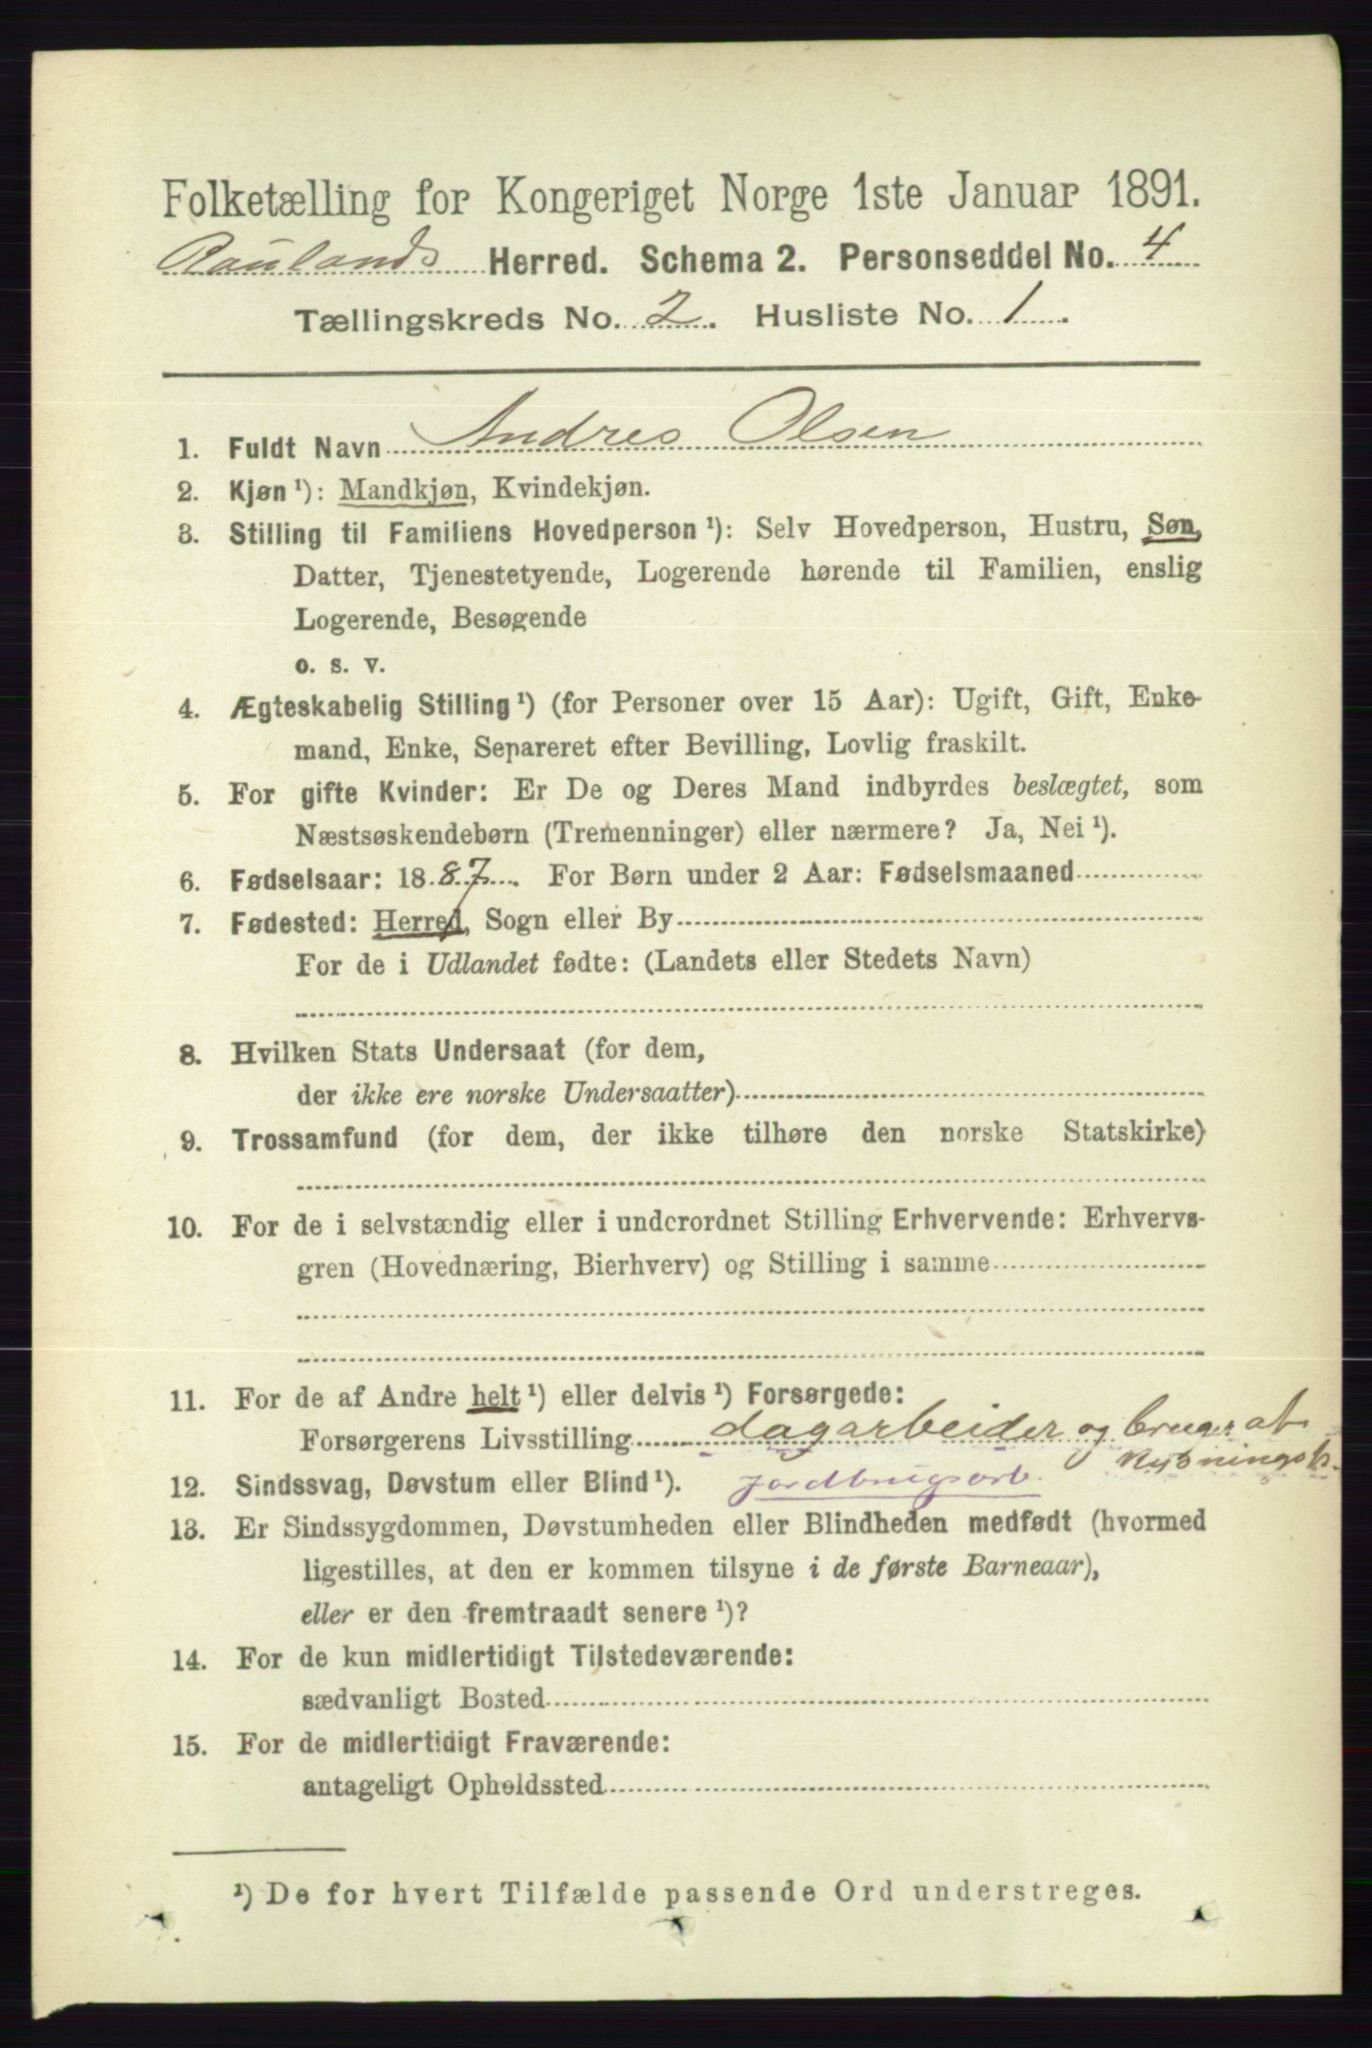 Folketælling for Kongeriget Norge 1ste Januar 1891.
Raulands Herred. Schema 2. Personseddel No. 4
Tællingskreds No. 2. Husliste No. 1.
1. Fuldt Navn Andres Olsen
2. Kjøn ¹): Mandkjøn, Kvindekjøn.
3. Stilling til Familiens Hovedperson ¹): Selv Hovedperson, Hustru, Søn,
Datter, Tjenestetyende, Logerende hørende til Familien, enslig
Logerende, Besøgende
o. s. v.
4. Ægteskabelig Stilling ¹) (for Personer over 15 Aar): Ugift, Gift, Enke-
mand, Enke, Separeret efter Bevilling, Lovlig fraskilt.
5. For gifte Kvinder: Er De og Deres Mand indbyrdes beslægtet, som
Næstsøskendebørn (Tremenninger) eller nærmere? Ja, Nei ¹).
6. Fødselsaar: 1887. For Børn under 2 Aar: Fødselsmaaned
7. Fødested: Herred, Sogn eller By
For de i Udlandet fødte: (Landets eller Stedets Navn)
8. Hvilken Stats Undersaat (for dem,
der ikke ere norske Undersaatter)
9. Trossamfund (for dem, der ikke tilhøre den norske Statskirke)
10. For de i selvstændig eller i underordnet Stilling Erhvervende: Erhvervs-
gren (Hovednæring, Bierhverv) og Stilling i samme
11. For de af Andre helt ¹) eller delvis ¹) Forsørgede:
Forsørgerens Livsstilling dagarbeider og bruger at
12. Sindssvag, Døvstum eller Blind ¹). jordbrugsarb.
13. Er Sindssygdommen, Døvstumheden eller Blindheden medfødt (hvormed
ligestilles, at den er kommen tilsyne i de første Barneaar),
eller er den fremtraadt senere ¹)?
14. For de kun midlertidigt Tilstedeværende:
sædvanligt Bosted
15. For de midlertidigt Fraværende:
antageligt Opholdssted
¹) De for hvert Tilfælde passende Ord understreges.